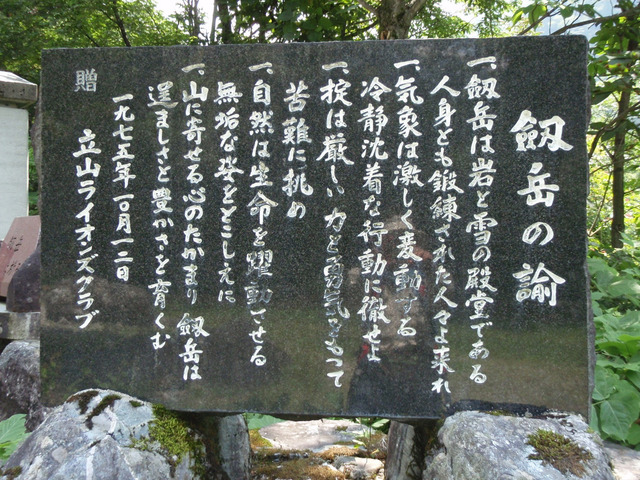 劔岳の諭
一、劔岳は岩と雪の殿堂である
人身とも鍛練された人々よ来れ
一、気象は激しく変動する
冷静沈着な行動に徹せよ
一、掟は厳しい力と勇気をもって
苦難に挑め
一、自然は生命を躍動させる
無垢な姿をとこしえに
一、山に寄せる心のたかまり 劔岳は
逞ましさと豊かさを育くむ
一九七五年一月一二日
贈 立山ライオンズクラブ